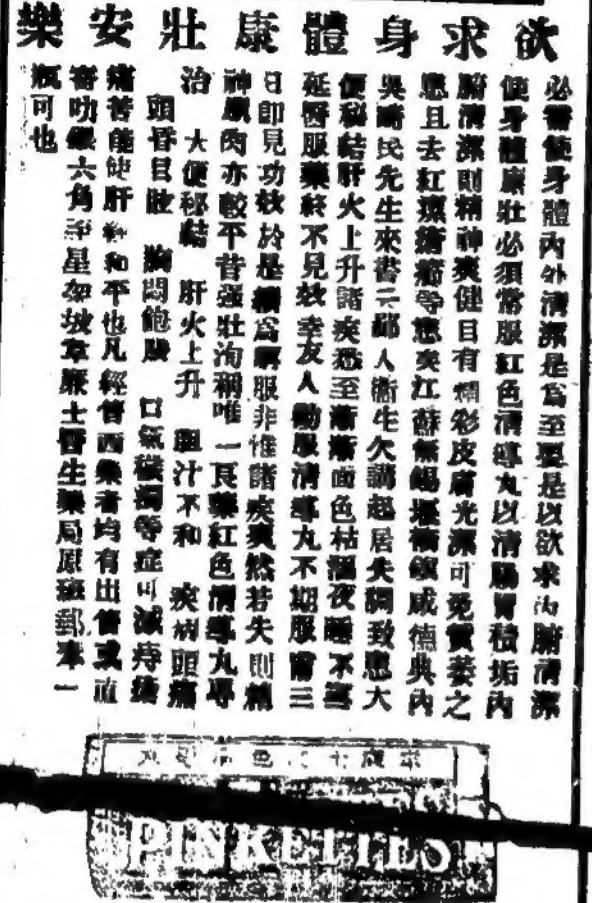 欲求身體康壯安樂
必需使身體內外清潔是為至要是以欲求內腑清潔
使身體康壯必須常服紅色清導丸以清腸胃積垢內
腑清潔則精神爽健目有精彩皮膚光潔可免黃萎之
患且去紅瘰瘡癤等患矣江蘇無錫堰橋敘成德典內
吳 民先生來書云鄙人衛生欠講起居失調致患大
便秘結肝火上升諸疾悉至漸漸面色枯 夜睡不
延醫服藥終不見效幸友人勸服清導丸不期服甫三
日即見功效於是續為購服非惟諸疾爽然若失則精
神肌肉亦較平昔强壯洵稱唯一良藥紅色清導丸專
治 大便秘結 肝火上升 膽汁不和 疾病頭痛
頭昏目眩 胸悶飽脹 口氣穢濁等症可滅痔瘡
痛苦能使肝 和平也凡經售西藥者均有出售或直
寄叻銀六角 星加坡韋廉士醫生藥局原班郵奉一
瓶可也
PINKETTES